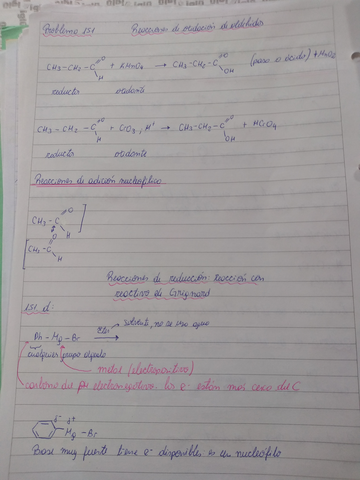 Problema 151 Reacciones de oxidación de aldehidos
CH3-CH2-C=O H + KMnO4 → CH3-CH2-C=O OH (pasa a ácido) + MnO2
reductor oxidante
CH3-CH2-C=O H + CrO3, H+ → CH3-CH2-C=O OH + HCrO4
reductor oxidante
Reacciones de adición nucleofílica
CH3-C=O H
CH3-C=O H
Reacciones de reducción: reacción con
reactivo de Grignard
151 d.
Ph-Mg-Br Eter → solvente, no se usa agua
cualquier grupo alquilo
metal (electropositivo)
carbono del ph electronegativo. los e- están más cerca del C
δ- δ+
Mg-Br
Base muy fuerte tiene e- disponibles es un nucleófilo